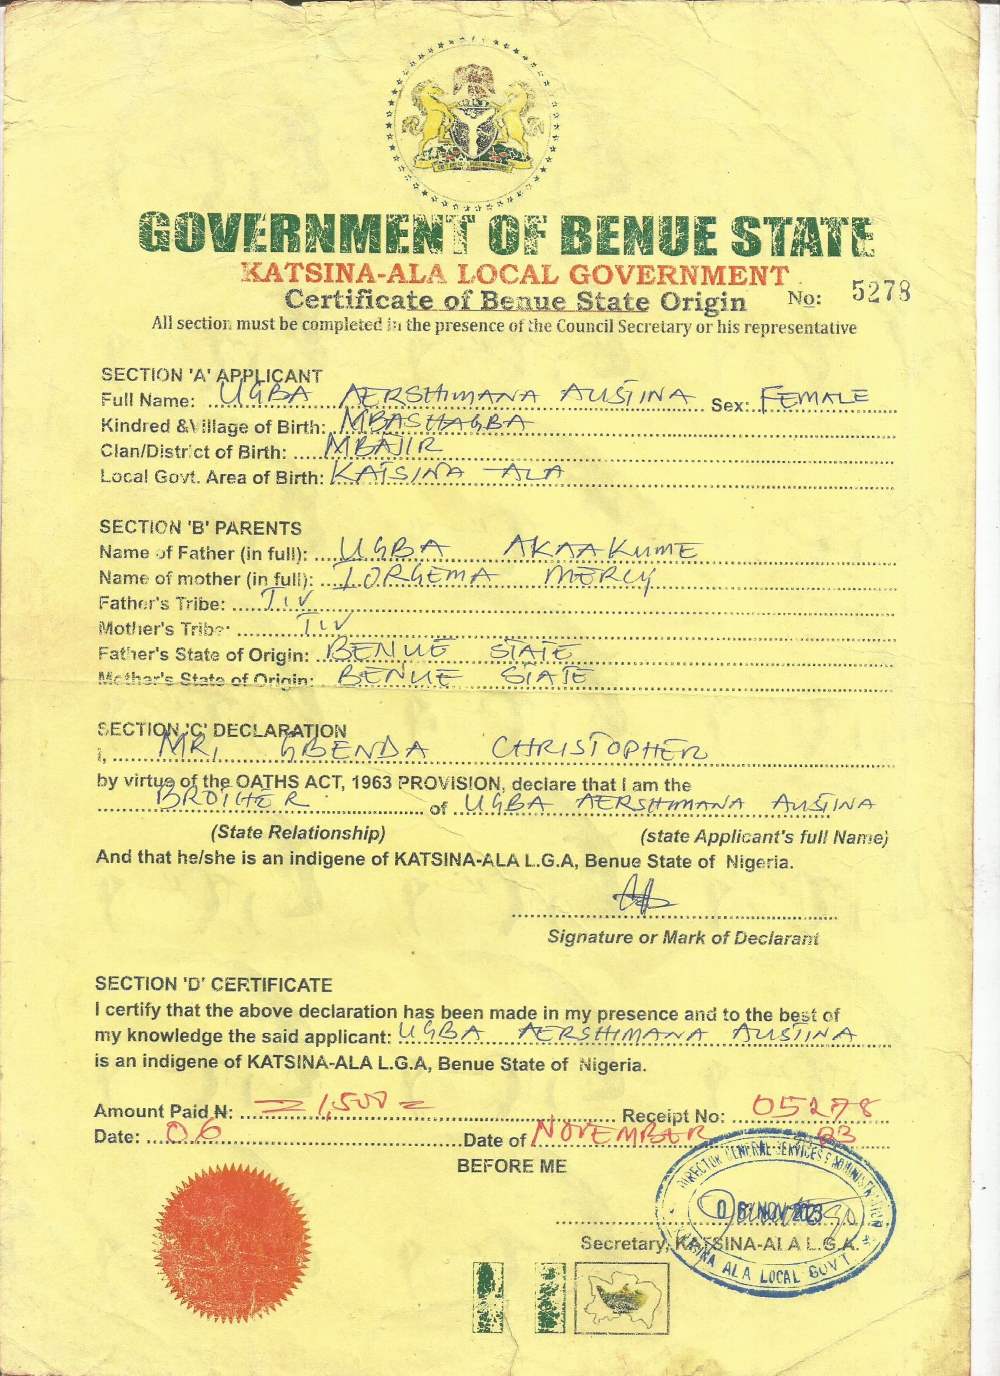 GOVERNMENT OF BENUE STATE
KATSINA-ALA LOCAL GOVERNMENT
Certificate of Benue State Origin No: 5278
All section must be completed in the presence of the Council Secretary or his representative
SECTION 'A' APPLICANT
Full Name: UGBA AERSHIMANA AUSTINA Sex: FEMALE
Kindred & Village of Birth: MBASHAGBA
Clan/District of Birth: MBAJIR
Local Govt. Area of Birth: KATSINA-ALA
SECTION 'B' PARENTS
Name of Father (in full): UGBA AKAAKUME
Name of mother (in full): IORGEMA MERCY
Father's Tribe: TIV
Mother's Tribe: TIV
Father's State of Origin: BENUE STATE
Mother's State of Origin: BENUE STATE
SECTION 'C' DECLARATION
I, MR, GBENDA CHRISTOPHER
by virtue of the OATHS ACT, 1963 PROVISION, declare that I am the
BROTHER of UGBA AERSHIMANA AUSTINA
(State Relationship) (state Applicant's full Name)
And that he/she is an indigene of KATSINA-ALA L.G.A, Benue State of Nigeria.
Signature or Mark of Declarant
SECTION 'D' CERTIFICATE
I certify that the above declaration has been made in my presence and to the best of
my knowledge the said applicant: UGBA AERSHIMANA AUSTINA
is an indigene of KATSINA-ALA L.G.A, Benue State of Nigeria.
Amount Paid ₦: =1,500= Receipt No: 05278
Date: 06 Date of NOVEMBER 03
BEFORE ME
DIRECTOR GENERAL SERVICES & ADMINISTRATION
06 NOV 2023
Secretary, KATSINA-ALA L.G.A.
KATSINA ALA LOCAL GOVT